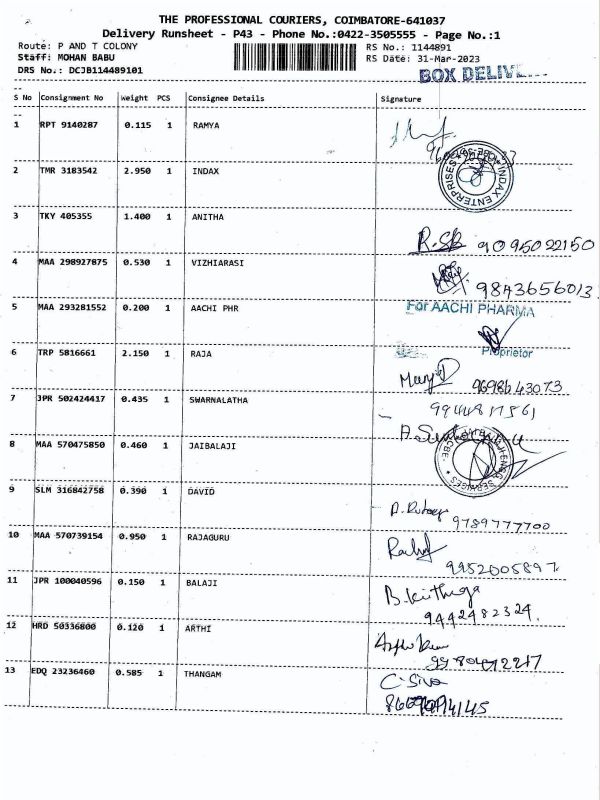 THE PROFESSIONAL COURIERS, COIMBATORE-641037
Delivery Runsheet - P43 - Phone No.:0422-3505555 - Page No.:1
Route: P AND T COLONY RS No.: 1144891
Staff: MOHAN BABU RS Date: 31-Mar-2023
DRS No.: DCJB114489101 BOX
S No Consignment No Weight PCS Consignee Details Signature
1 RPT 9140287 0.115 1 RAMYA
2 TMR 3183542 2.950 1 INDAX
INDAX ENTERPRISES
3 TKY 405355 1.400 1 ANITHA
9095022150
4 MAA 298927875 0.530 1 VIZHIARASI
9843656013
5 MAA 293281552 0.200 1 AACHI PHR For AACHI PHARMA
Proprietor
6 TRP 5816661 2.150 1 RAJA
9698643073
7 JPR 502424417 0.435 1 SWARNALATHA
8 MAA 570475850 0.460 1 JAIBALAJI
9 SLM 316842758 0.390 1 DAVID
9789777700
10 MAA 570739154 0.950 1 RAJAGURU
9952005897
11 JPR 100040596 0.150 1 BALAJI
9442482324
12 HRD 50336800 0.120 1 ARTHI
13 EDQ 23236460 0.585 1 THANGAM
C. Siva